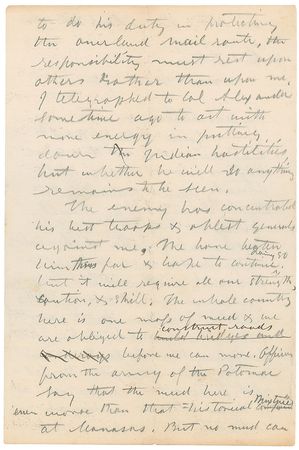 to do his duty in protecting
the overland mail route, the
responsibility must rest upon
others rather than upon me.
I telegraphed to Col Alexander
some time ago to act with
more energy in putting
down the Indian hostilities
but whether he will do anything
remains to be seen.
The enemy has concentrated
his best troops & ablest generals
against me. We have beaten
him thus far & hope to continue doing so
but it will require all our strength,
caution, & skill. The whole country
here is one mass of mud & we
are obliged to build bridges and construct roads
before we can move. Officers
from the army of the Potomac
say that the mud here is
even worse than that historical
at Manassas. But no mud can